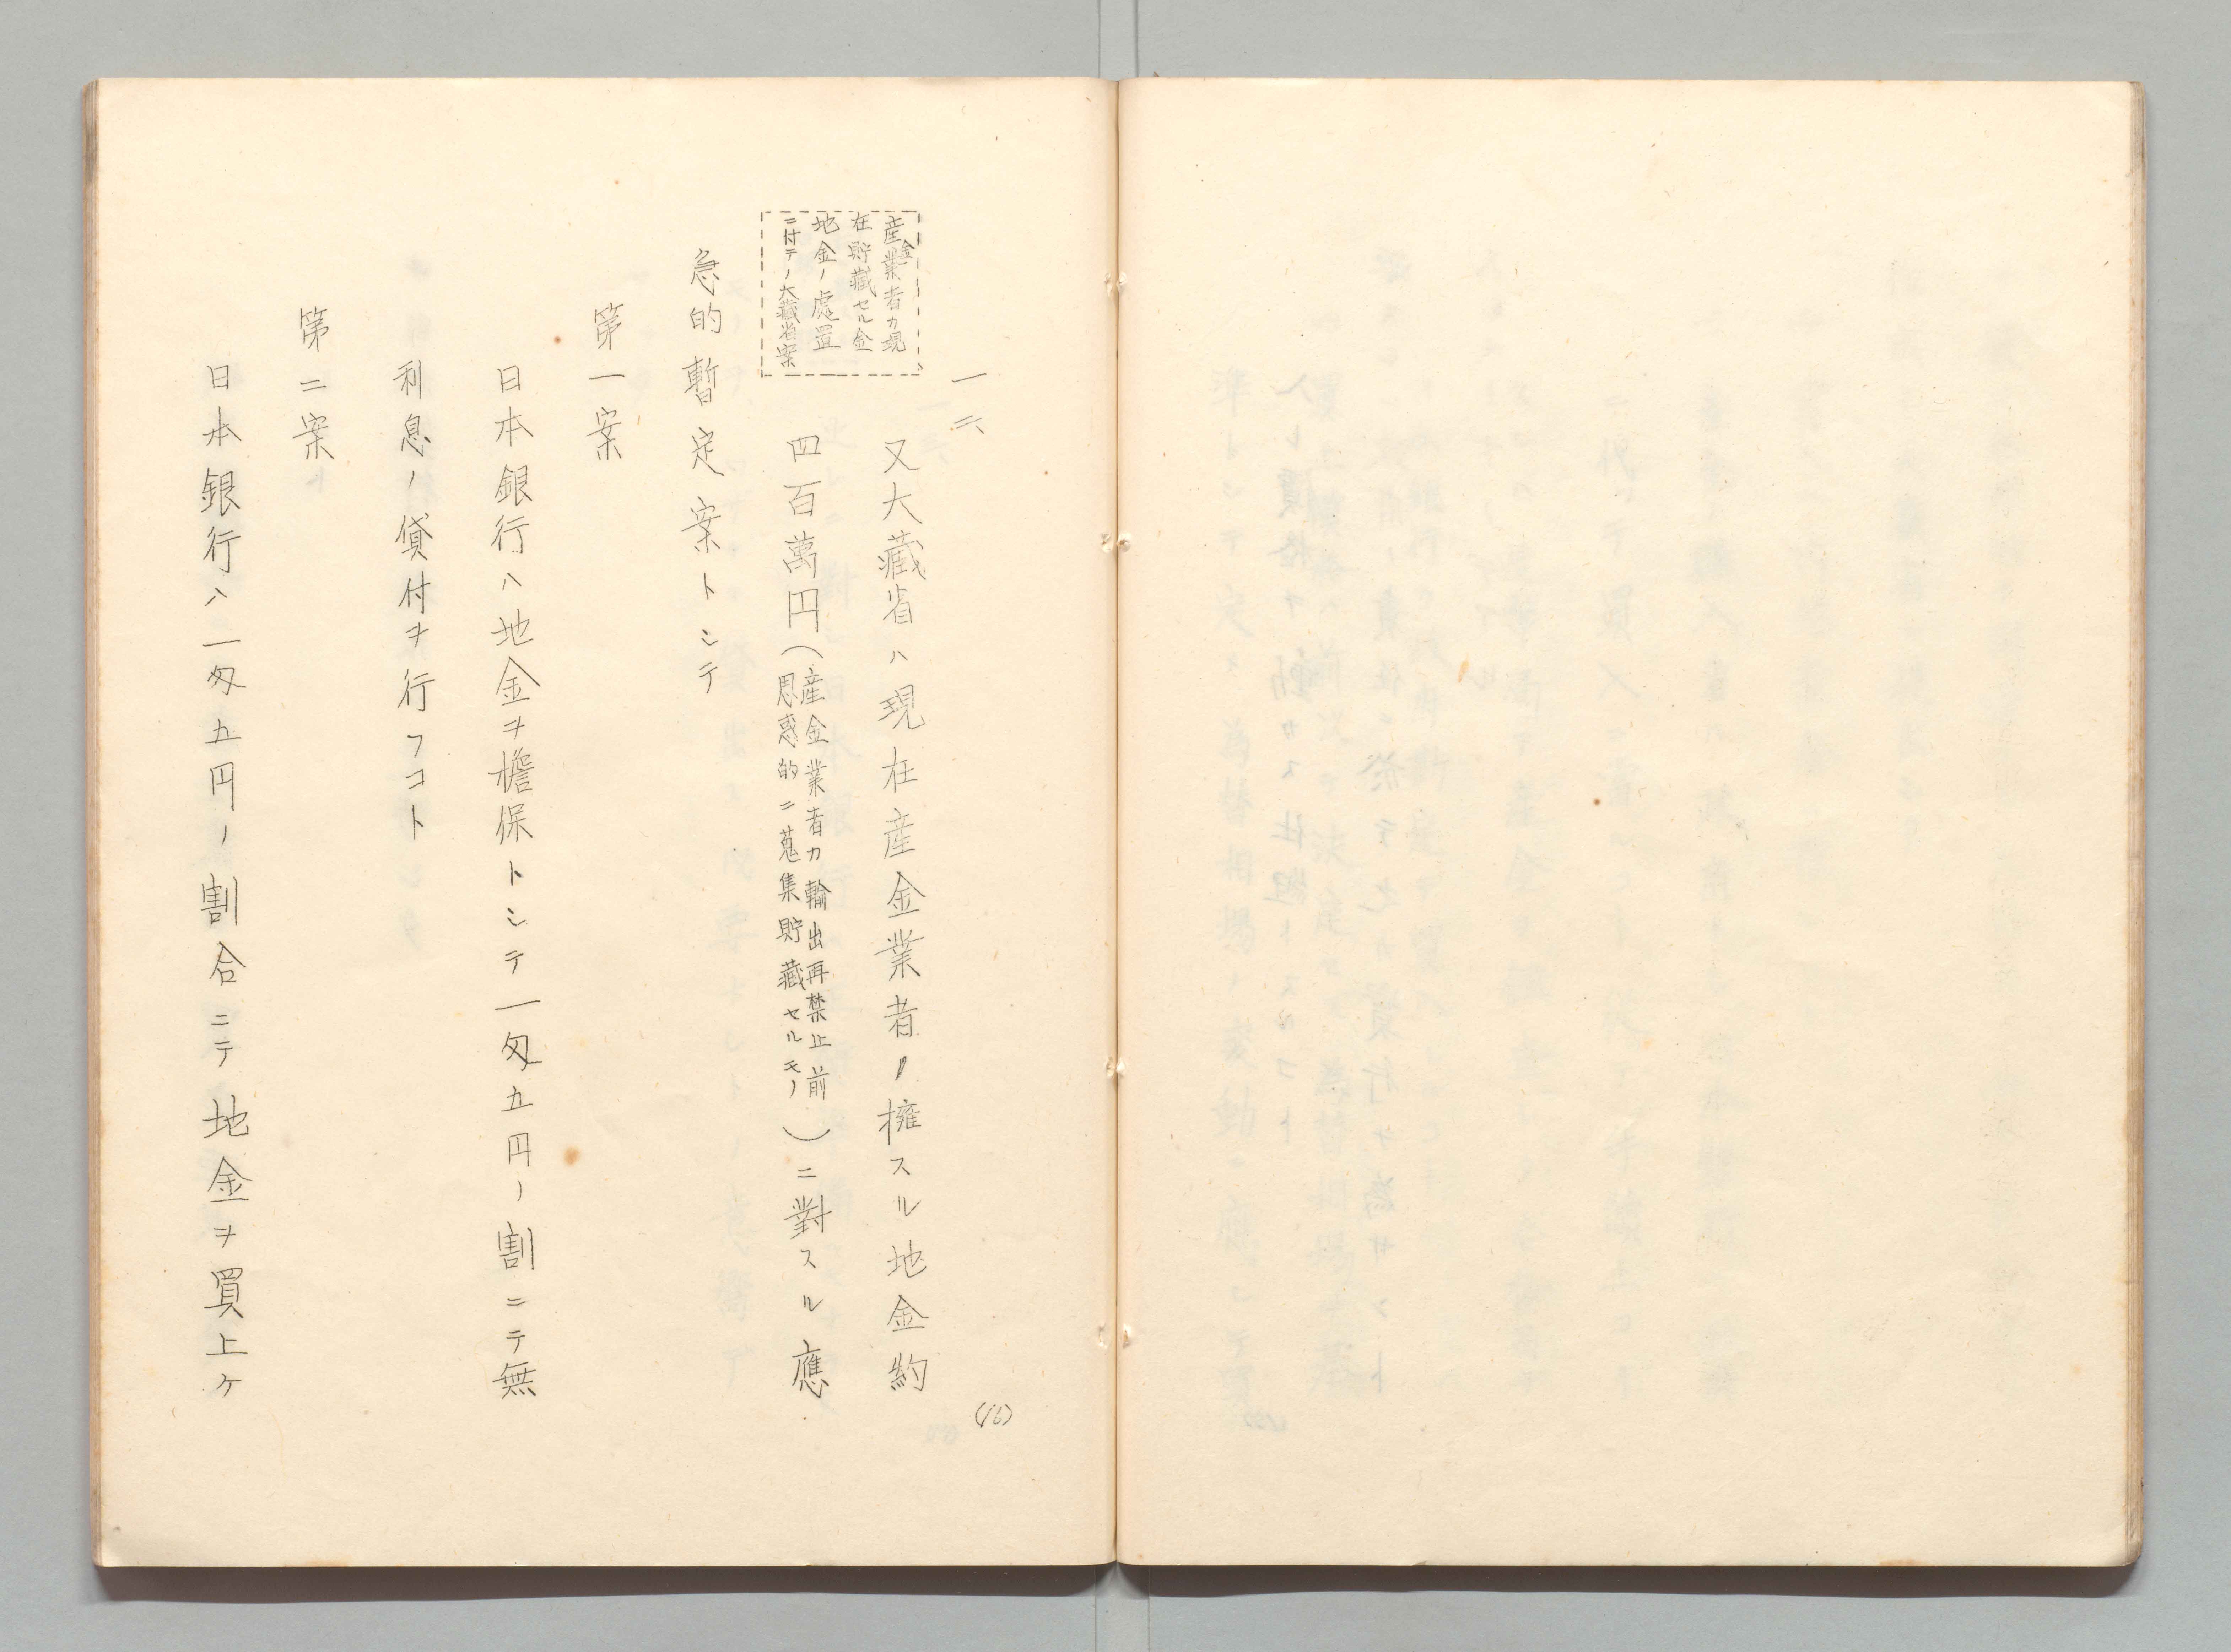 一六
産金業者カ現
在貯藏セル金
地金ノ處置
ニ付テノ大藏省案
又大藏省ハ現在産金業者ノ擁スル地金約
四百萬円(産金業者カ輸出再禁止前思惑的ニ蒐集貯藏セルモノ)ニ對スル應
急的暫定案トシテ
第一案
日本銀行ハ地金ヲ擔保トシテ一匁五円ノ割ニテ無
利息ノ貸付ヲ行フコト
第二案
日本銀行ハ一匁五円ノ割合ニテ地金ヲ買上ケ
(16)